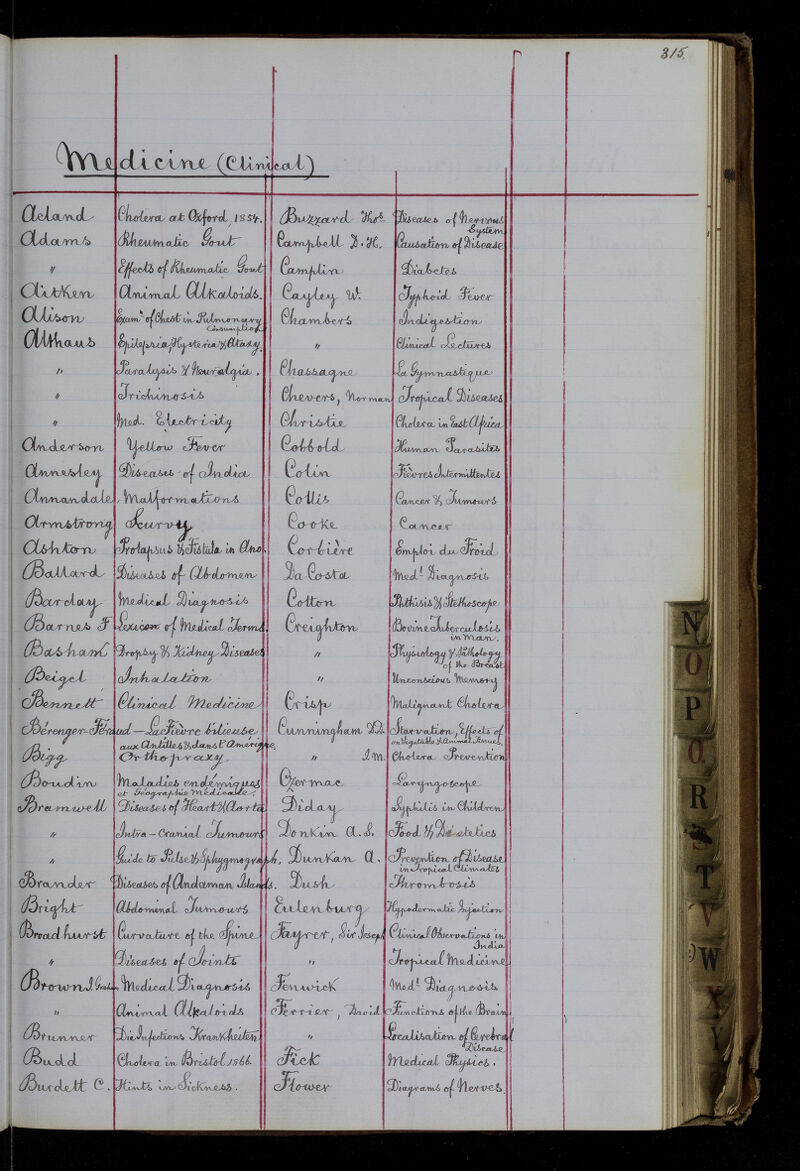 315.
Medicine (Clinical)
Acland Cholera at Oxford, 1854.
Adams Rheumatic Gout
" Effects of Rheumatic Gout
Aitken Animal Alkaloids.
Alison Exam.n of Chest in Pulmonary Consumption
Althaus Epilepsia, Hysteria & Ataxy.
" Paralysis & Neuralgia.
" Trichinosis
" Med. Electricity
Anderson Yellow Fever
Annesley Diseases of India
Annandale Malformations
Armstrong Scurvy
Ashton Prolapsus & Fistula in Ano.
Ballard Diseases of Abdomen
Barclay Medical Diagnosis
Barnes F Lexicon of Medical Terms.
Basham Dropsy & Kidney Diseases
Beigel Inhalation
Bennett Clinical Medicine
Bérenger-Féraud — La Fièvre bilieuse
aux Antilles & dans l'Amérique.
Bigg Orthopraxy.
Boudin Maladies endémiques
et Géographie Médicale.
Bramwell Diseases of Heart & Aorta
" Intra-Cranial Tumours
" Guide to Pulse & Sphygmograph.
Brander Diseases of Andaman Islands.
Bright Abdominal Tumours
Broadhurst Curvature of the Spine
" Diseases of Joints
Brown J. Medical Diagnosis
" Animal Alkaloids
Brunner Die Infections Krankheiten
Budd Cholera in Bristol 1866.
Burdett C. Hints in Sickness.
Buzzard Thos. Diseases of Nervous System
Campbell D. H. Causation of Disease
Camplin Diabetes
Cayley W. Typhoid Fever
Chambers Indigestion
" Clinical Lectures
Chassagne La Gymnastique
Chevers, Norman Tropical Diseases
Christie Cholera in East Africa
Cobbold Human Parasites
Colin Fièvres Intermittentes
Collis Cancer & Tumours
Cooke Cancer
Corbière Emploi du Froid
Da Costa Med.l Diagnosis
Cotton Phthisis & Stethoscope
Creighton Bovine Tuberculosis
in Man.
" Physiology & Pathology
of the Breast
" Unconscious Memory
Crisp Malignant Cholera
Cunningham D.D. Starvation, Effects of
on Vegetable & Animal Tissues.
" J.M. Cholera Prevention
Czermac Laryngoscope
Diday Syphilis in Children
Donkin A.S. Food & Dietetics
Dunkan A. Prevention of Disease
in Tropical Climates
Dush Thrombosis
Eulenburg Hypodermatic Injection
Fayrer, Sir Joseph Clinical Observations in
India
" Tropical Medicine
Fenwick Med.l Diagnosis
Ferrier, David Functions of the Brain
" Localisation of Cerebral
Disease
Fick Medical Physics.
Flower Diagrams of Nerves.
N
O
P
Q
R
S
T
V
W
X
Y